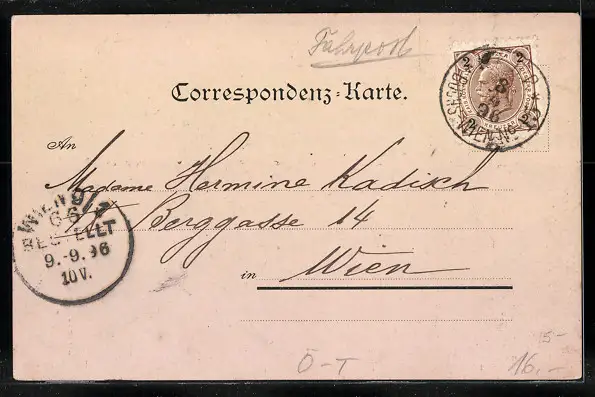 Fahrpost
2 2
8
9
96
WIEN
Correspondenz-Karte.
An
Madame Hermine Kadisch
IX Berggasse 14
in Wien
WIEN 9/1
66
BESTELLT
9.-9.96
10V.
5-
Ö-T
16,-